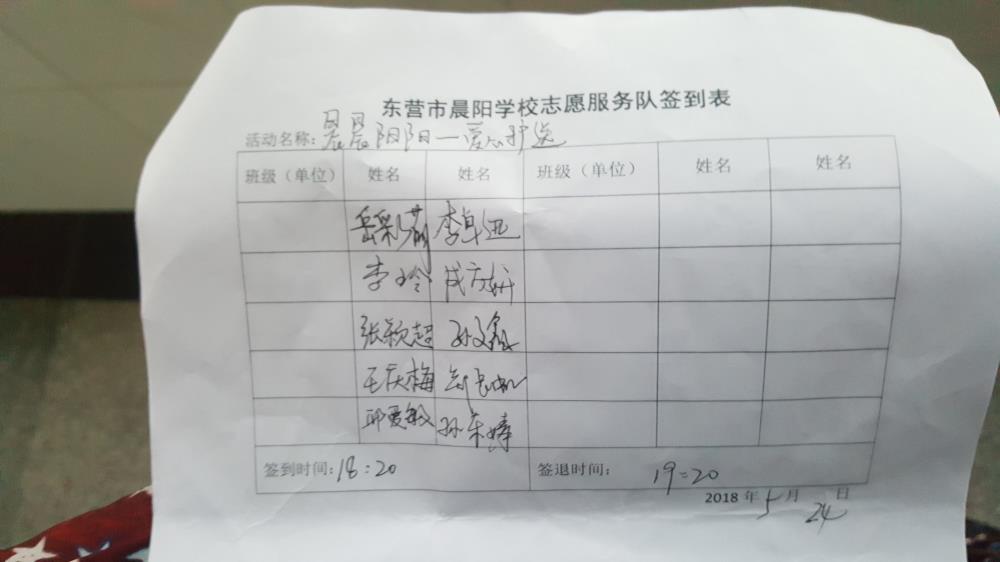 东营市晨阳学校志愿服务队签到表
活动名称：晨晨阳阳一爱心护送
班级（单位） 姓名 姓名 班级（单位） 姓名 姓名
岳彩 李卓迅
李玲
张颖超 孙文鑫
王庆梅
邱爱敏 孙东婷
签到时间：18：20 签退时间：19：20
2018 年 5 月 24 日